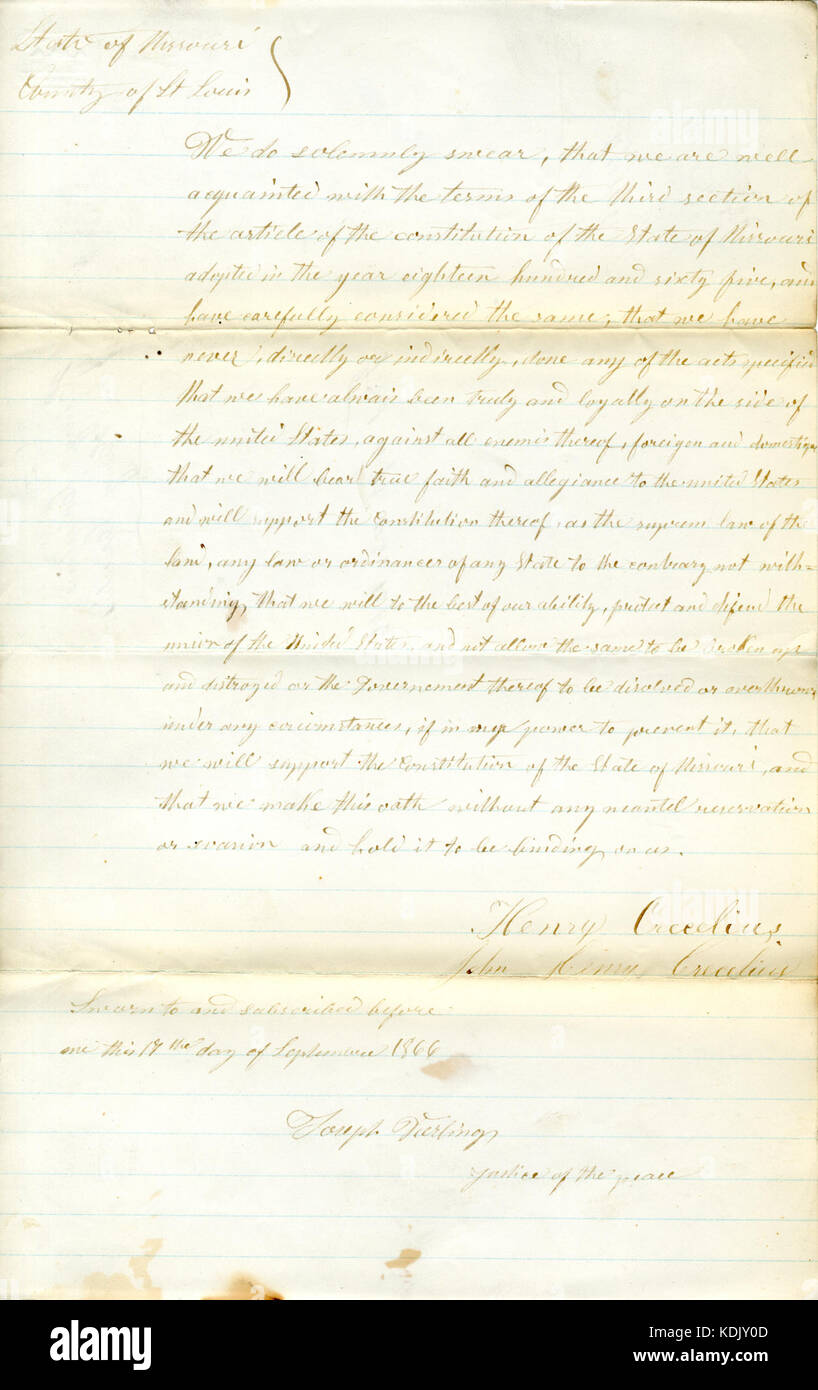 State of Missouri
County of St Louis
We do solemnly swear, that we are well
acquainted with the terms of the third section of
the article of the constitution of the State of Missouri
adopted in the year eighteen hundred and sixty five, and
have carefully considered the same; that we have
never, directly or indirectly, done any of the acts specified
that we have alwais been truly and loyally on the side of
the united States, against all enemis thereof, foreigen and domestique
that we will bear true faith and allegiance to the united States
and will support the Constitution thereof, as the supreme law of the
land, any law or ordinances of any State to the contrary not with=
standing, that we will to the best of our ability, protect and defend the
union of the United States, and not allow the same to be broken up
and distroyed or the Governement thereof to be disolved or overthrown
under any circumstances, if in my power to prevent it, that
we will support the Constitution of the State of Missouri, and
that we make this oath without any meantel reservation
or evasion and hold it to be binding on us.
Henry Crecelius
John Henry Crecelius
Sworn to and subscribed before
me this 17th day of September 1866
Joseph
justice of the peace
alamy
Image ID: KDJY0D
www.alamy.com